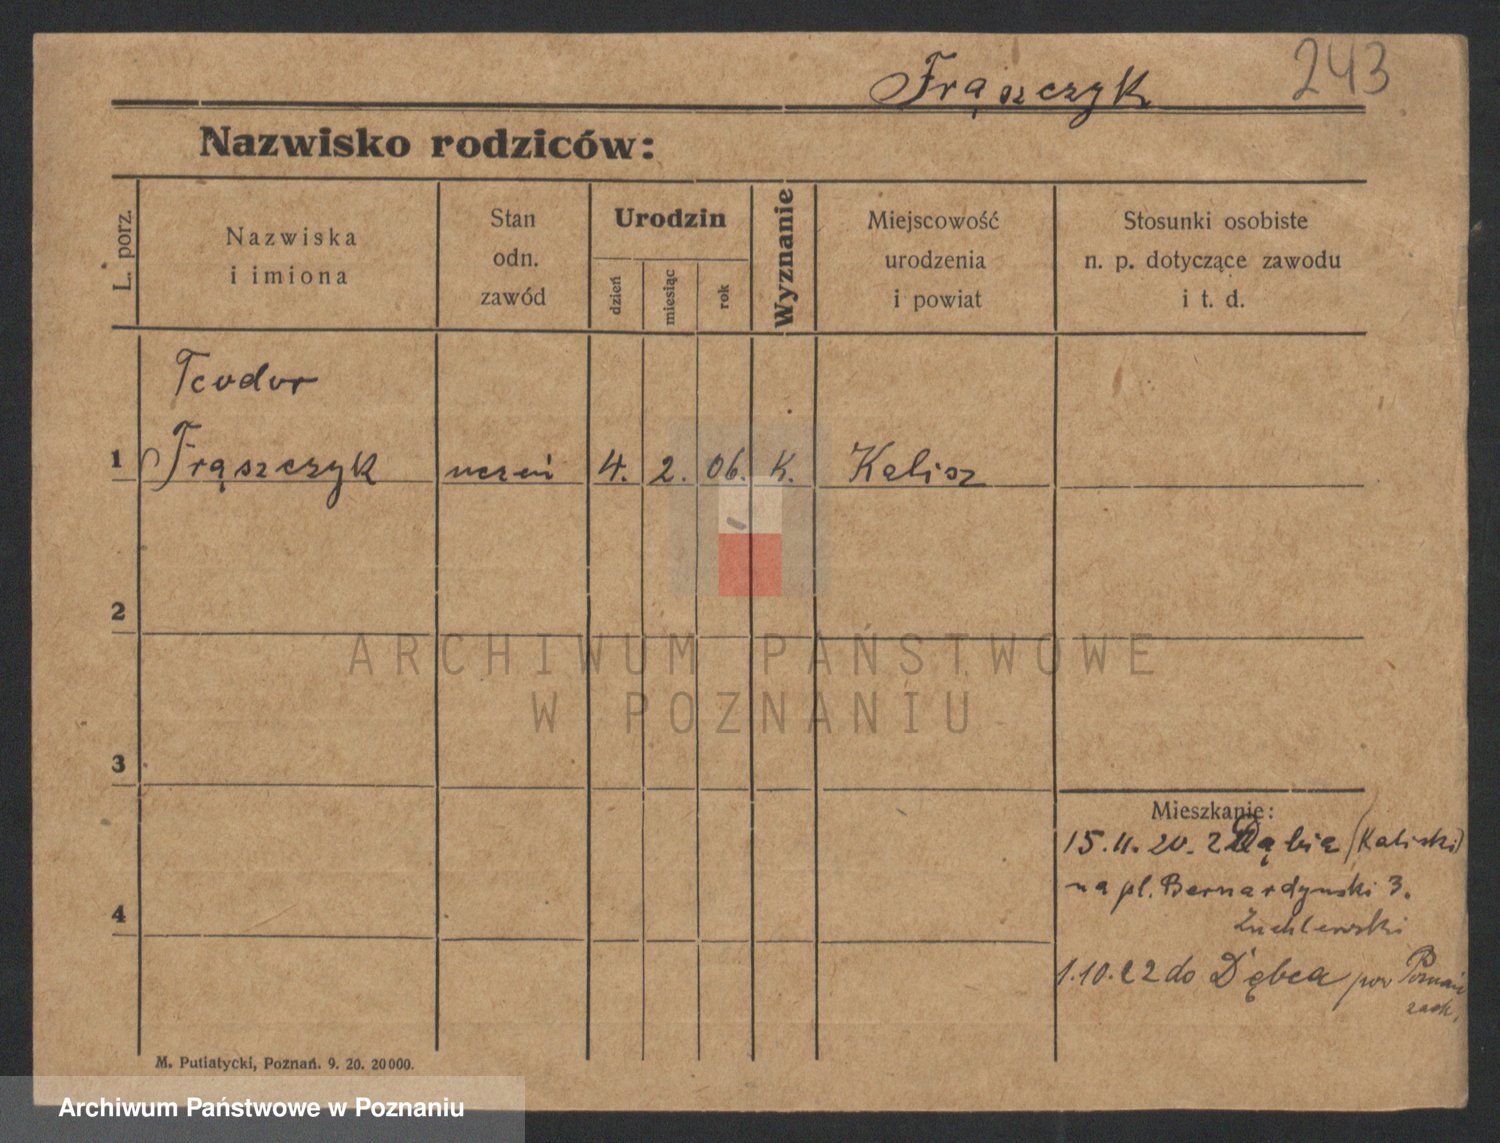 243
Frąszczyk
Nazwisko rodziców:
L. porz.
Nazwiska
i imiona
Stan
odn.
zawód
Urodzin
dzień
miesiąc
rok
Wyznanie
Miejscowość
urodzenia
i powiat
Stosunki osobiste
n. p. dotyczące zawodu
i t. d.
Teodor
1 Frąszczyk uczeń 4. 2. 06. K. Kalisz
2
ARCHIWUM PAŃSTWOWE
W POZNANIU
3
4
Mieszkanie:
15.11.20. z Dąbia (Kaliski)
na pl. Bernardyński 3.
1.10.22 do Dębca pow Poznań
zach.
M. Putiatycki, Poznań. 9. 20. 20000.
Archiwum Państwowe w Poznaniu